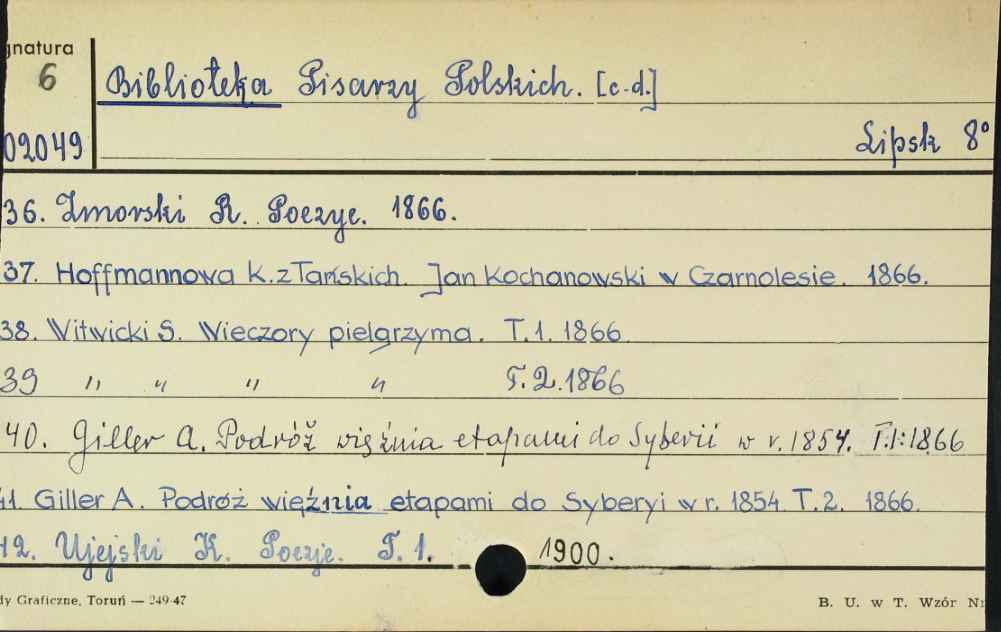 gnatura
6
Biblioteka Pisarzy Polskich. [c.d.]
02049
Lipsk 8°
36. Zmorski R. Poezye. 1866.
37. Hoffmannowa K. z Tańskich. Jan Kochanowski w Czarnolesie. 1866.
38. Witwicki S. Wieczory pielgrzyma. T.1. 1866
39 " " " " T.2.1866
40. Giller A. Podróż więźnia etapami do Syberii w r. 1854. T.1:1866
41. Giller A. Podróż więźnia etapami do Syberyi w r. 1854 T.2. 1866.
42. Ujejski K. Poezje. T. 1. 1900.
dy Graficzne, Toruń — 249-47
B. U. w T. Wzór Nr